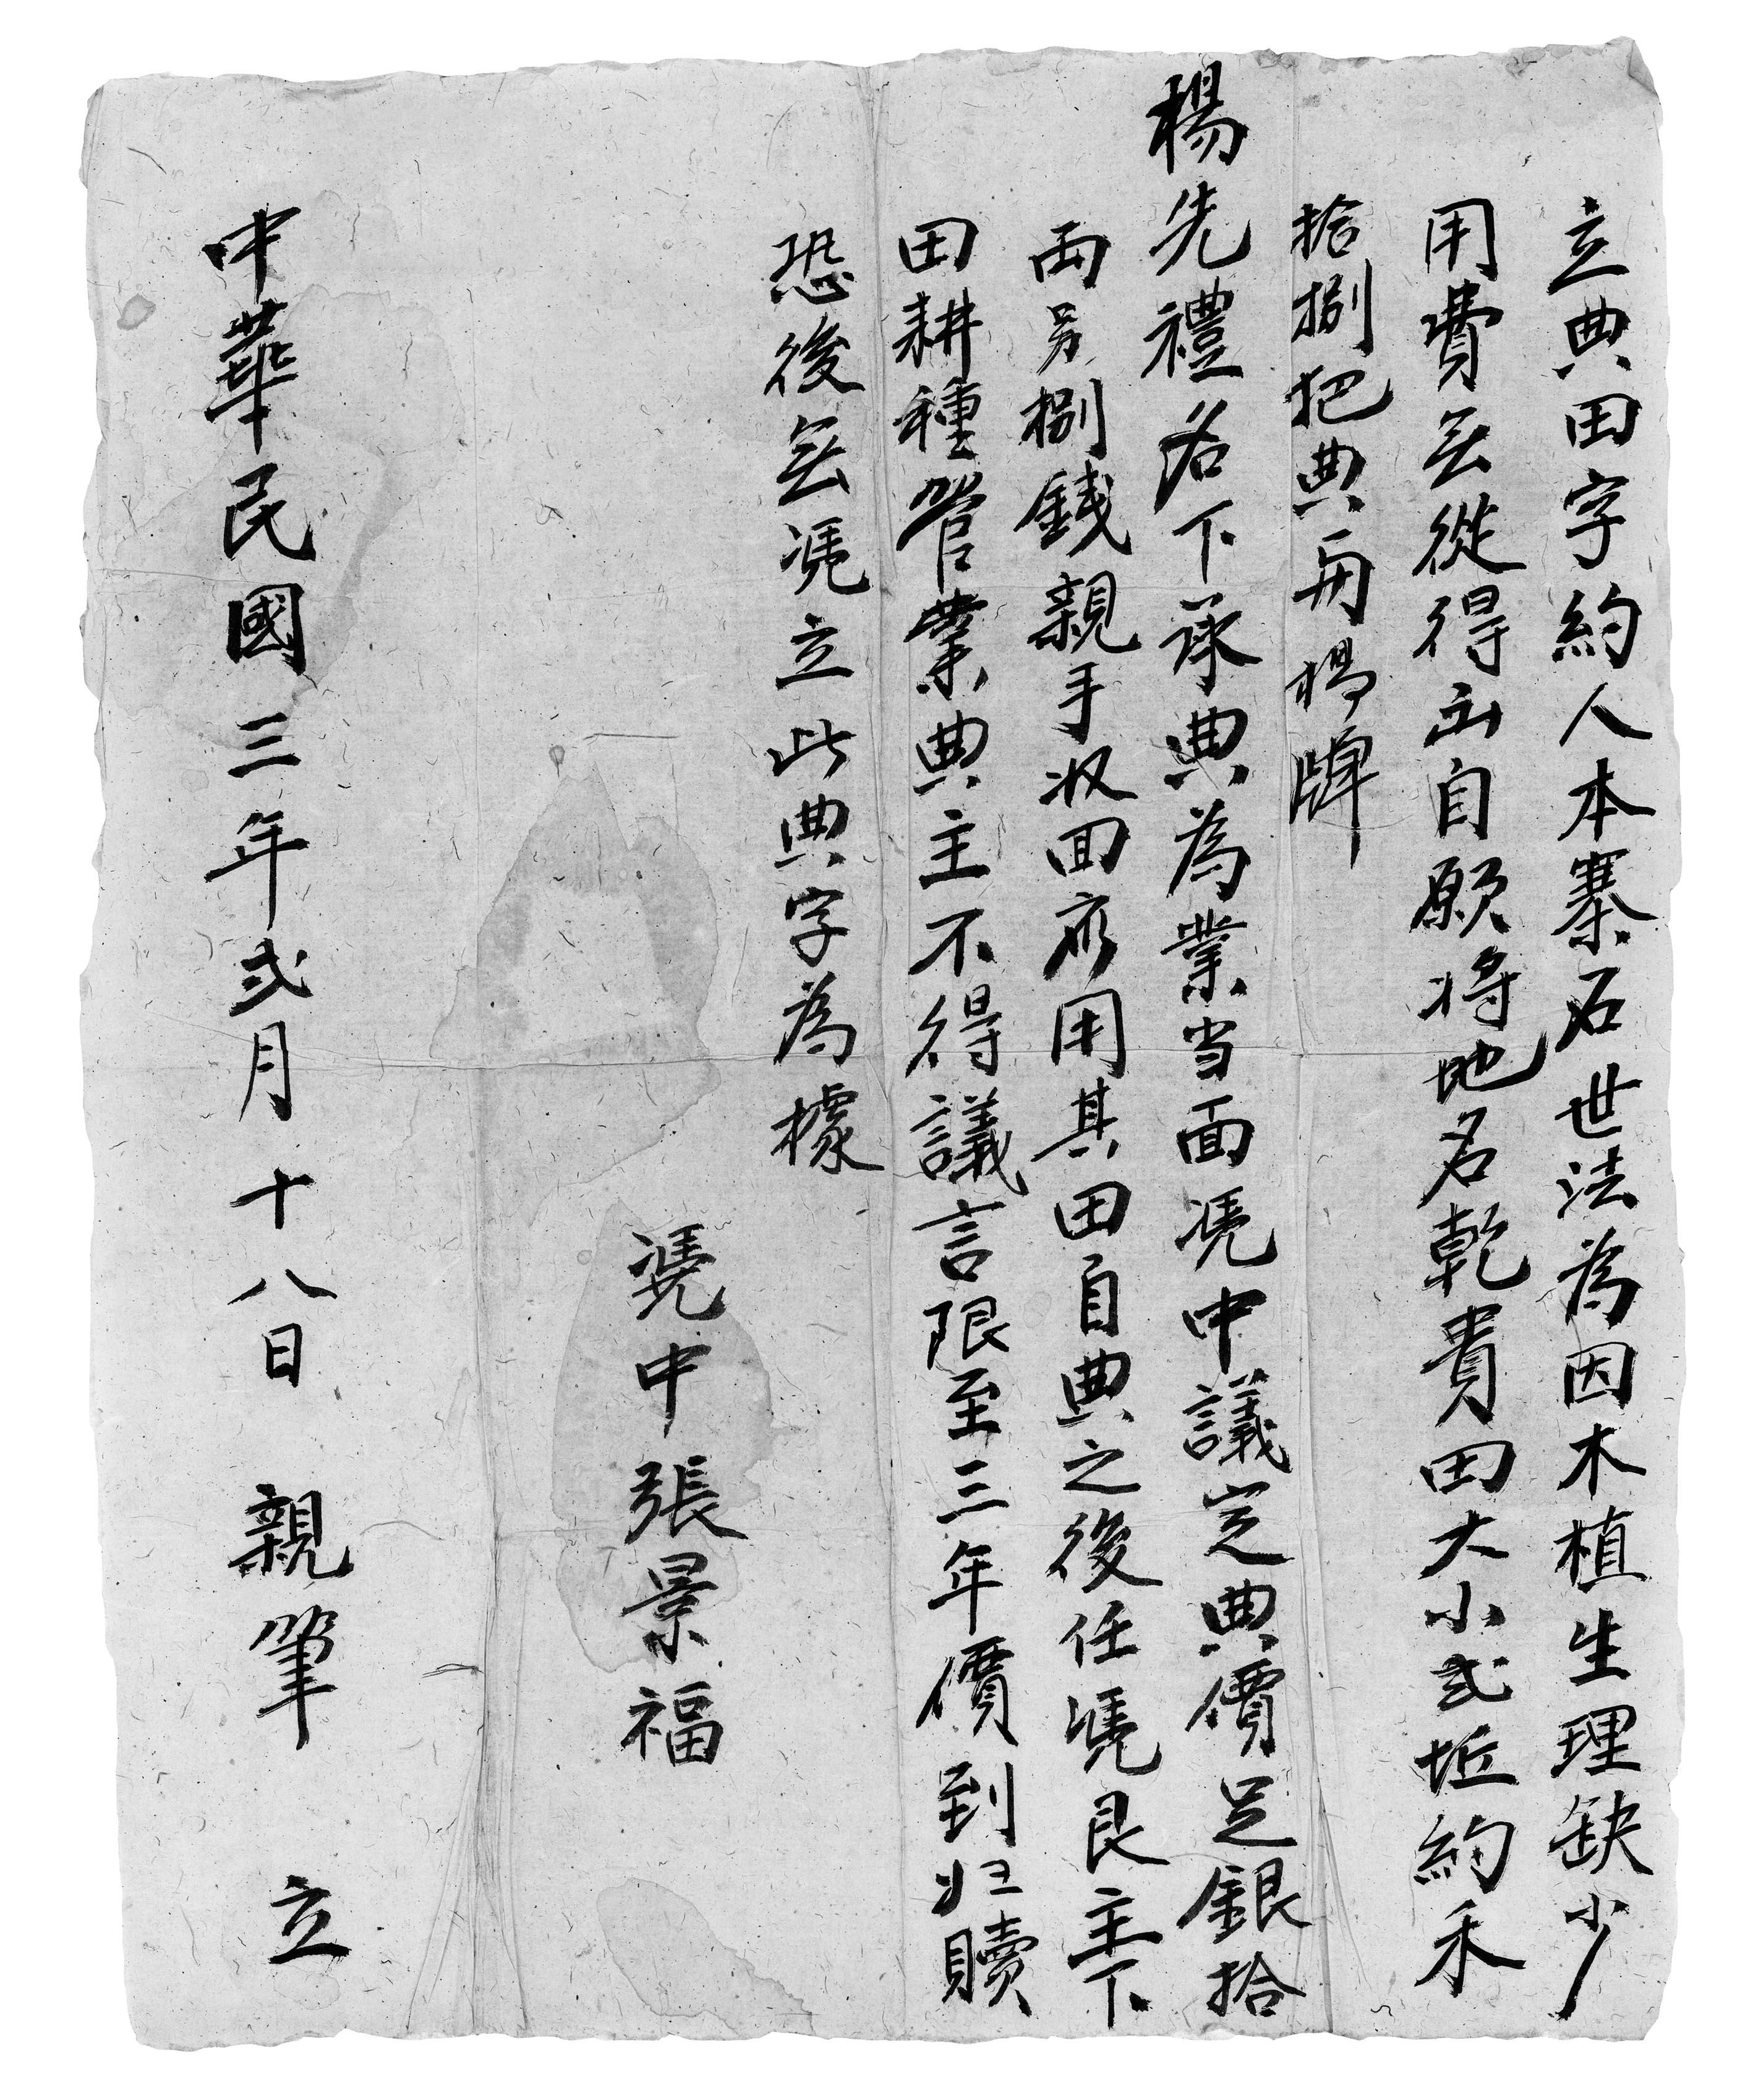 立典田字約人本寨石世法為因木植生理缺少
用費無從得出自願将地名乾賣田大小弍坵約禾
拾捌把典與楊
楊先禮名下承典為業当面凴中議定典價足銀拾
両另捌錢親手收回應用其田自典之後任凴艮主下
田耕種管業典主不得議言限至三年價到归贖
恐後無凴立此典字為據
凴中張景福
中華民國三年弍月十八日 親筆 立